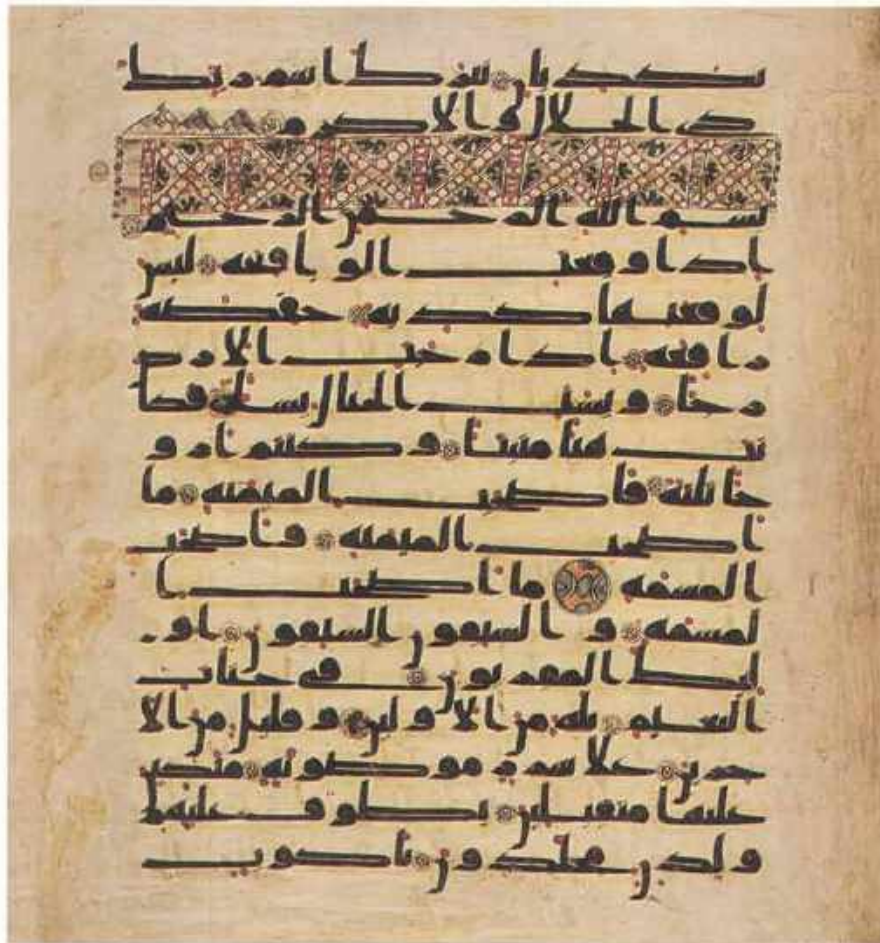 تكذبان تبرك اسم ربك
ذي الجلل والاكرم
بسم الله الرحمن الرحيم
اذا وقعت الواقعة ليس
لوقعتها كذبة خافضة
رافعة اذا رجت الارض
رجا وبست الجبال بسا فكا
نت هبا منبثا وكنتم ازو
اجا ثلثة فاصحب الميمنة ما
اصحب الميمنة واصحب
المشمة ما اصحب ا
لمشمة والسبقون السبقون او
لئك المقربون في جنت
النعيم ثلة من الاولين وقليل من الا
خرين على سرر موضونة متكين
عليها متقبلين يطوف عليهم
ولدن مخلدون باكوب